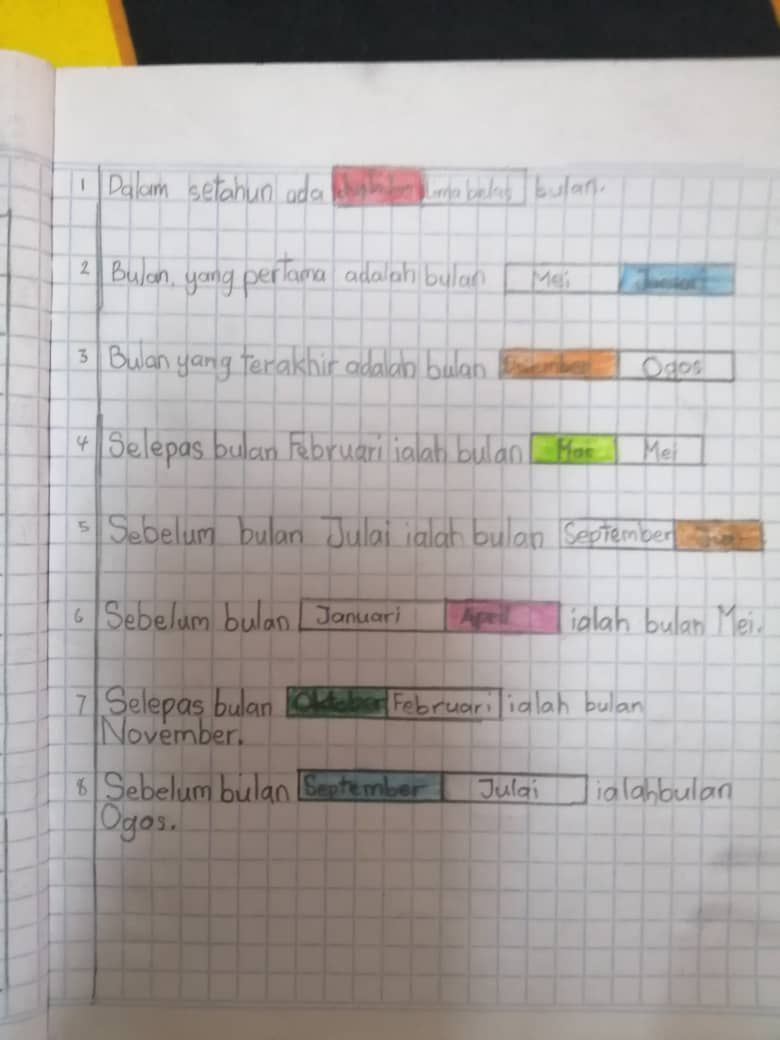 1 Dalam setahun ada dua belas lima belas bulan.
2 Bulan yang pertama adalah bulan Mei Januari
3 Bulan yang terakhir adalah bulan Disember Ogos
4 Selepas bulan Februari ialah bulan Mac Mei
5 Sebelum bulan Julai ialah bulan September Jun
6 Sebelum bulan Januari April ialah bulan Mei.
7 Selepas bulan Oktober Februari ialah bulan
November.
8 Sebelum bulan September Julai ialah bulan
Ogos.